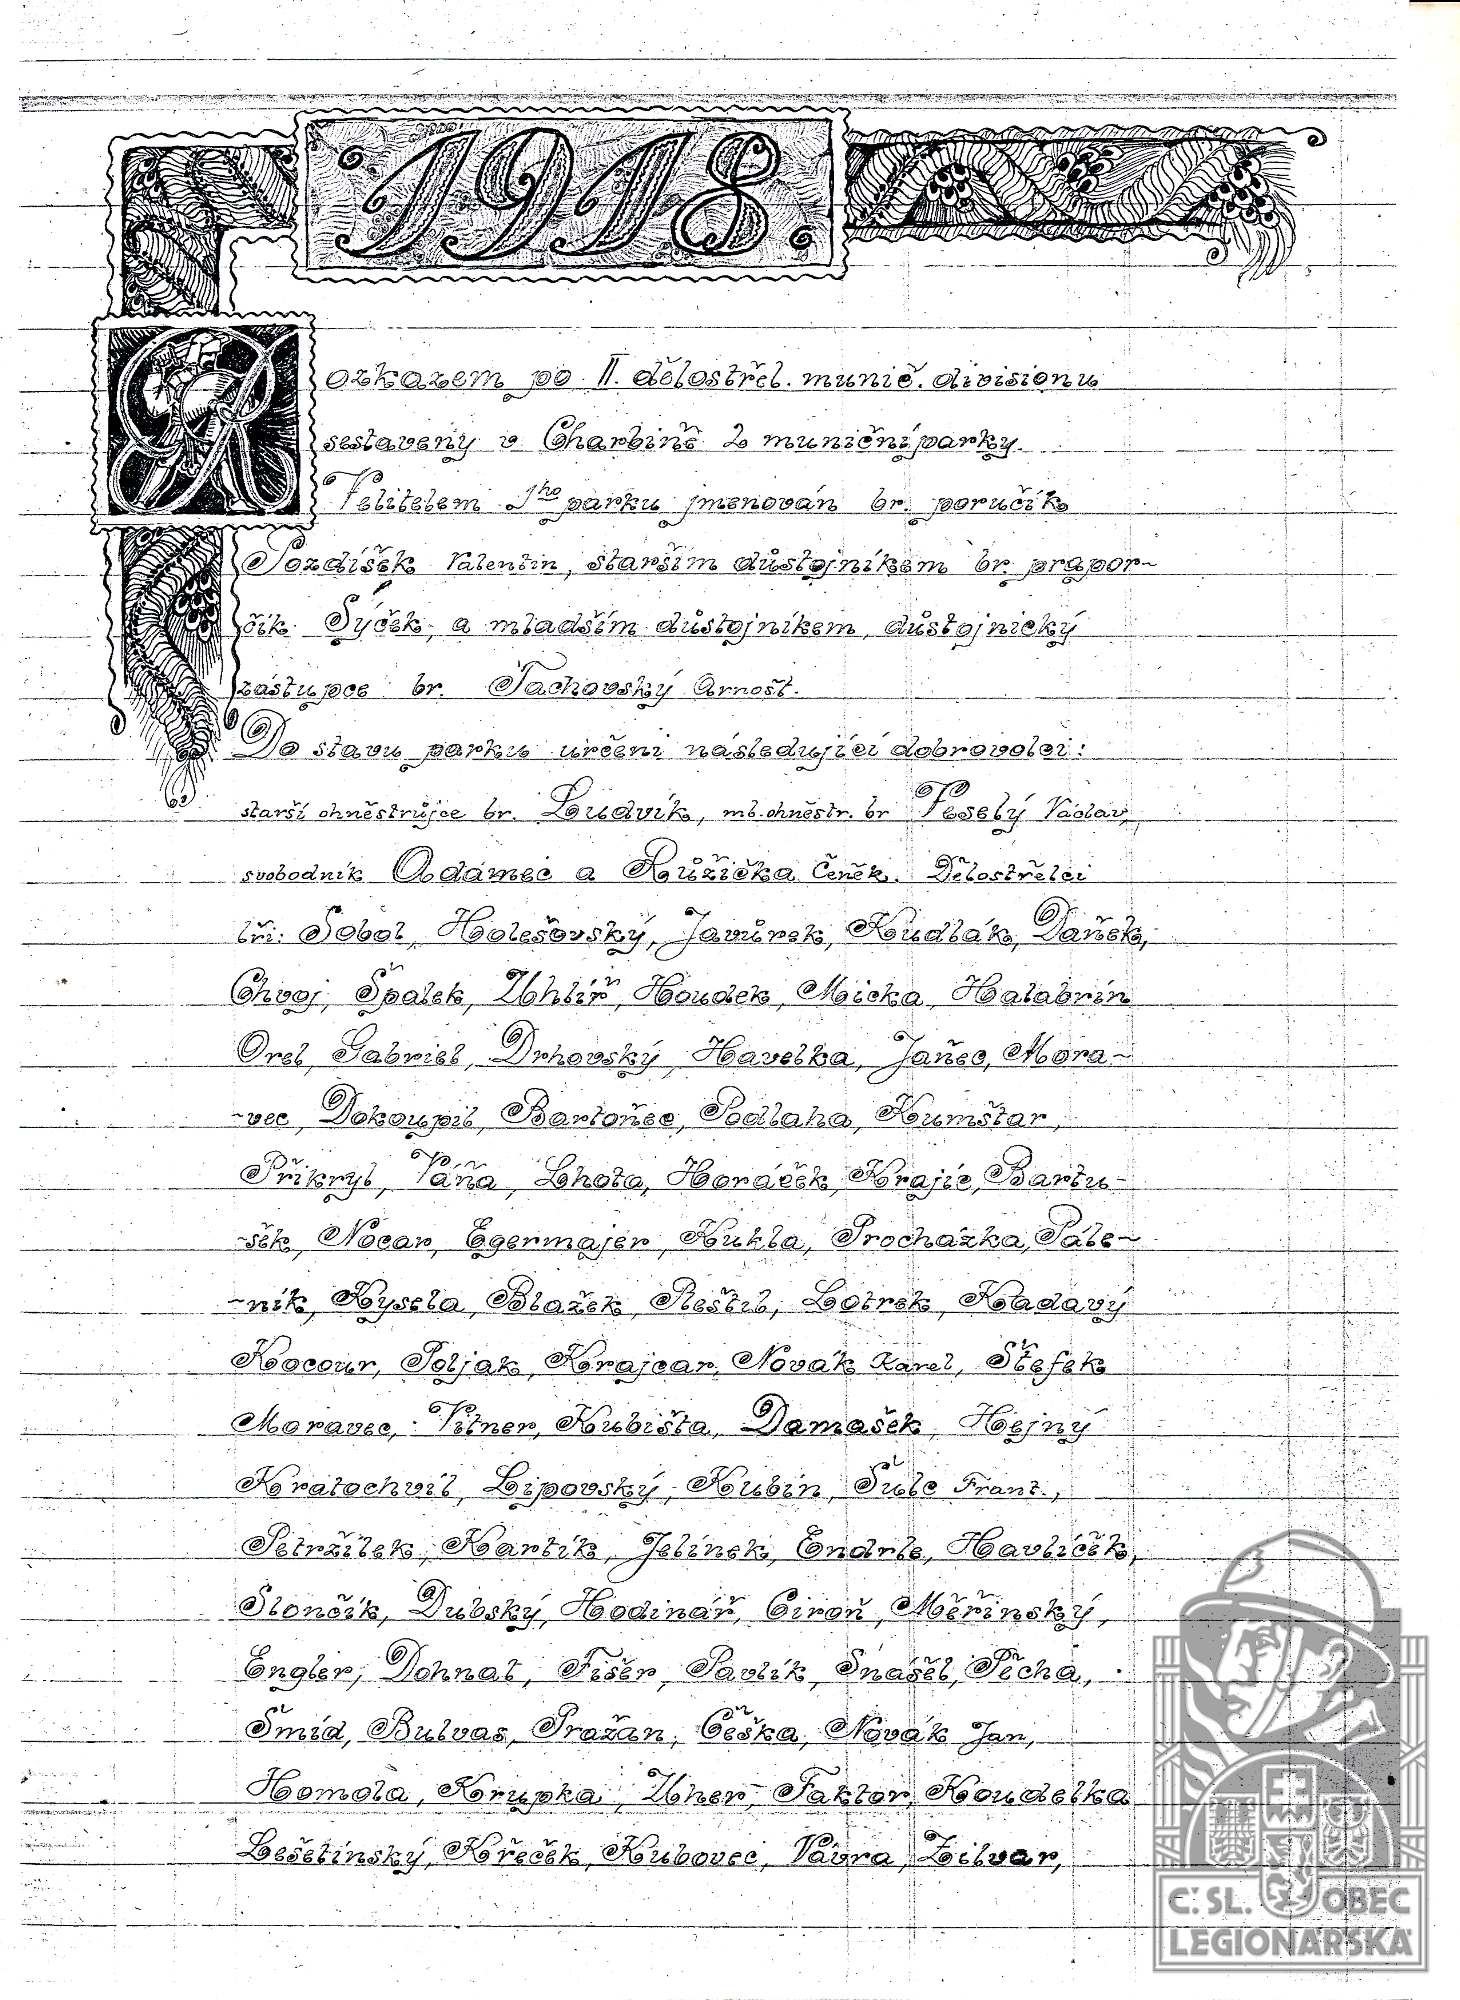 1918.
Rozkazem po II. dělostřel. munič. divisionu
sestaveny v Charbině 2 muniční parky.
Velitelem 1ho parku jmenován br. poručík
Pozdíšek Valentin, starším důstojníkem br. prapor~
čík Sýček, a mladším důstojníkem, důstojnický
zástupce br. Tachovský Arnošt.
Do stavu parku určeni následující dobrovolci:
starší ohněstrůjce br. Ludvík, ml. ohněstr. br Veselý Václav,
svobodník Adamec a Růžička Čeněk. Dělostřelci
bři: Sobol, Holešovský, Javůrek, Kudlák, Daněk,
Chvoj, Špalek, Uhlíř, Houdek, Micka, Halabrín
Orel, Gabriel, Drhovský, Havelka, Janec, Mora~
~vec, Dokoupil, Bartoněc, Podlaha, Kumštar,
Přikryl, Váňa, Lhota, Horáček, Krajíc, Bartu~
~šek, Nocar, Egermajer, Kukla, Procházka, Pále~
~ník, Kysela, Blažek, Reštil, Lotrek, Kladavý
Kocour, Poljak, Krajcar, Novák Karel, Štefek
Moravec, Vitner, Kubišta, Damašek, Hejný
Kratochvíl, Lipovský, Kubín, Šulc Frant.,
Petržílek, Kartík, Jelínek, Endrle, Havlíček,
Slončík, Dubský, Hodinář, Ciroň, Měřinský,
Engler, Dohnal, Fišer, Pavlík, Snášel, Pěcha,
Šmíd, Bulvas, Pražan, Češka, Novák Jan,
Homola, Krupka, Uher, Faktor, Koudelka
Lešetínský, Křeček, Kubovec, Vávra, Zilvar,
Č. SL. OBEC
LEGIONÁŘSKÁ